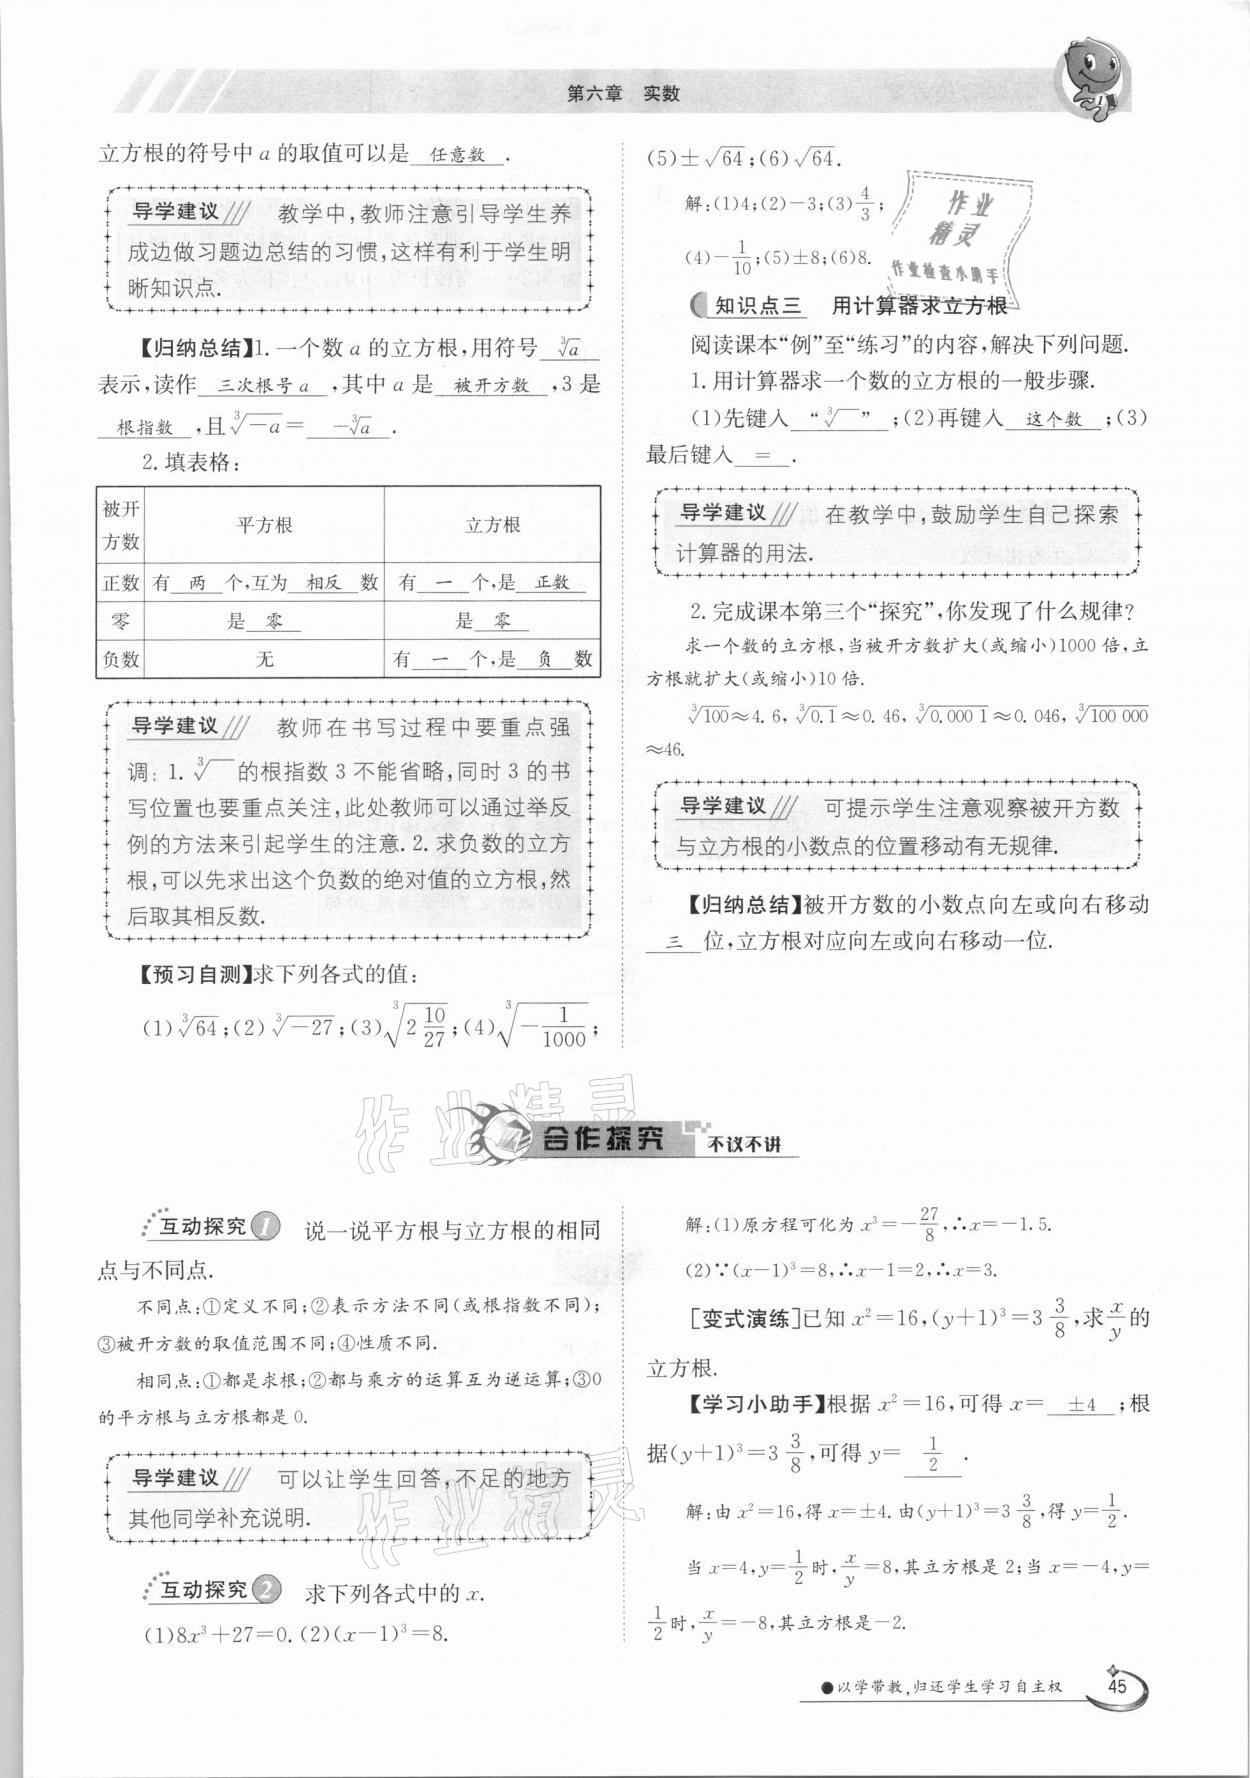 第六章 实数
立方根的符号中 a 的取值可以是 任意数 .
导学建议/// 教学中,教师注意引导学生养
成边做习题边总结的习惯,这样有利于学生明
晰知识点.
【归纳总结】1. 一个数 a 的立方根,用符号 ∛a
表示,读作 三次根号 a ,其中 a 是 被开方数 ,3 是
根指数 ,且∛−a= −∛a .
2. 填表格:
被开方数 平方根 立方根
正数 有 两 个,互为 相反 数 有 一 个,是 正数
零 是 零 是 零
负数 无 有 一 个,是 负 数
导学建议/// 教师在书写过程中要重点强
调: 1. ∛ 的根指数 3 不能省略,同时 3 的书
写位置也要重点关注,此处教师可以通过举反
例的方法来引起学生的注意. 2. 求负数的立方
根,可以先求出这个负数的绝对值的立方根,然
后取其相反数.
【预习自测】求下列各式的值:
(1)∛64;(2)∛−27;(3)∛(2 10/27);(4)∛(−1/1000);
(5)±√64;(6)√64.
解:(1)4;(2)−3;(3)4/3;
(4)−1/10;(5)±8;(6)8.
作业
精灵
作业检查小助手
知识点三 用计算器求立方根
阅读课本“例”至“练习”的内容,解决下列问题.
1. 用计算器求一个数的立方根的一般步骤.
(1)先键入 “∛ ” ;(2)再键入 这个数 ;(3)
最后键入 = .
导学建议/// 在教学中,鼓励学生自己探索
计算器的用法.
2. 完成课本第三个“探究”,你发现了什么规律?
求一个数的立方根,当被开方数扩大(或缩小)1000 倍,立
方根就扩大(或缩小)10 倍.
∛100≈4. 6,∛0. 1≈0. 46,∛0. 000 1≈0. 046,∛100 000
≈46.
导学建议/// 可提示学生注意观察被开方数
与立方根的小数点的位置移动有无规律.
【归纳总结】被开方数的小数点向左或向右移动
三 位,立方根对应向左或向右移动一位.
作业精灵
合作探究 不议不讲
互动探究 1 说一说平方根与立方根的相同
点与不同点.
不同点:①定义不同;②表示方法不同(或根指数不同);
③被开方数的取值范围不同;④性质不同.
相同点:①都是求根;②都与乘方的运算互为逆运算;③0
的平方根与立方根都是 0.
导学建议/// 可以让学生回答,不足的地方
其他同学补充说明.
作业精灵
互动探究 2 求下列各式中的 x.
(1)8x³+27=0. (2)(x−1)³=8.
解:(1)原方程可化为 x³=−27/8,∴x=−1. 5.
(2)∵(x−1)³=8,∴x−1=2,∴x=3.
[变式演练]已知 x²=16,(y+1)³=3 3/8,求x/y的
立方根.
【学习小助手】根据 x²=16,可得 x= ±4 ;根
据(y+1)³=3 3/8,可得 y= 1/2 .
解:由 x²=16,得 x=±4. 由(y+1)³=3 3/8,得 y=1/2.
当 x=4,y=1/2时,x/y=8,其立方根是 2;当 x=−4,y=
1/2时,x/y=−8,其立方根是−2.
●以学带教,归还学生学习自主权 45